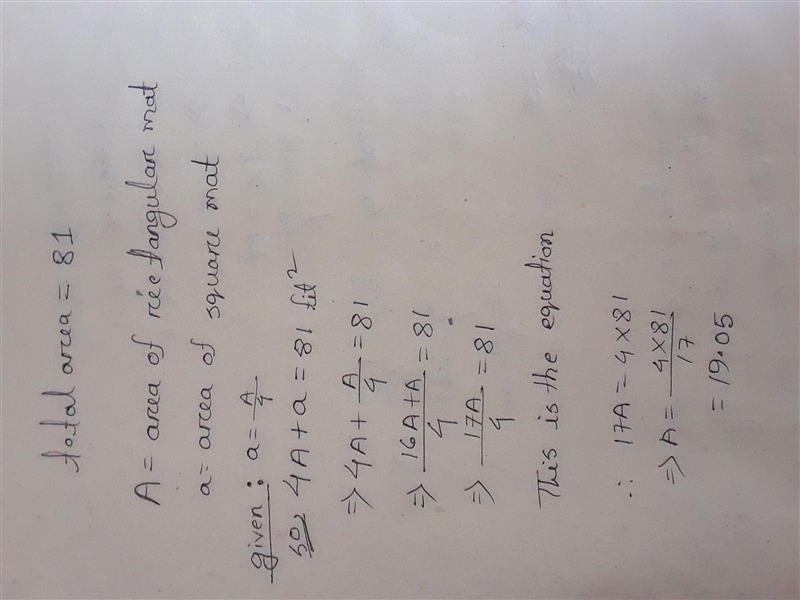 total area = 81
A = area of rectangular mat
a = area of square mat
given : a = A/4
so, 4A + a = 81 fit²
⇒ 4A + A/4 = 81
⇒ 16A + A/4 = 81
⇒ 17A/4 = 81
This is the equation
∴ 17A = 4 × 81
⇒ A = 4 × 81/17
= 19.05